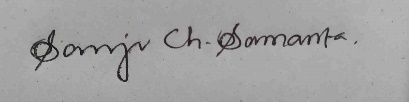 Sanju Ch. Samanta.